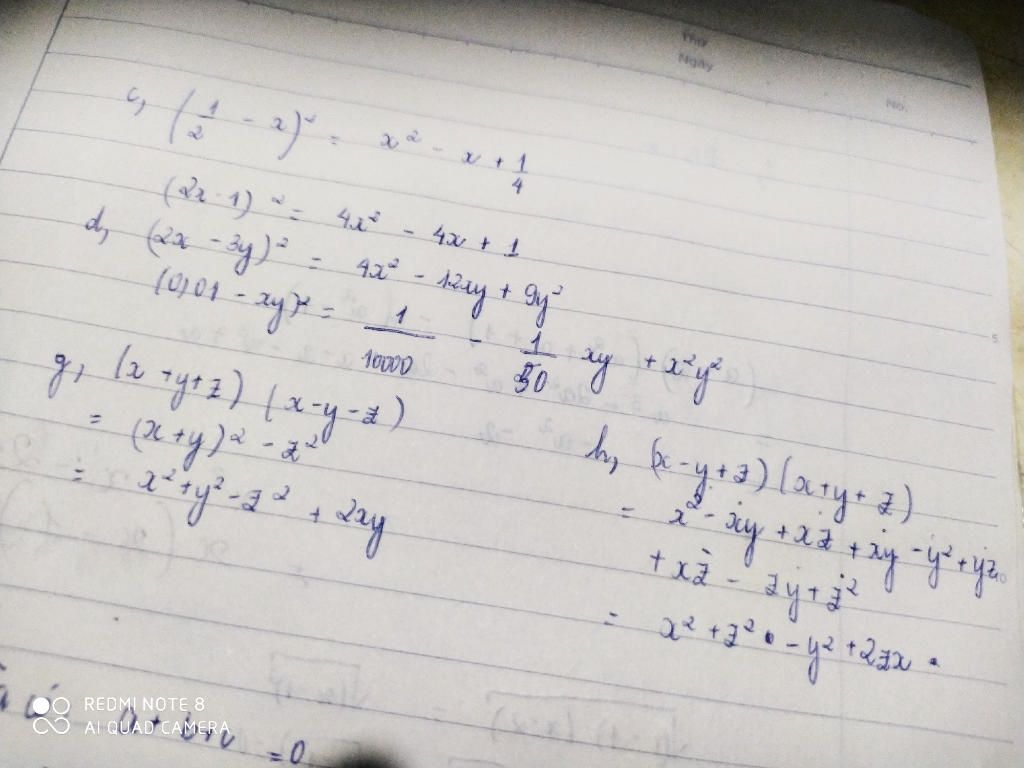 Thứ
Ngày
No.
c, (1/2 - x)² = x² - x + 1/4
(2x - 1)² = 4x² - 4x + 1
d, (2x - 3y)² = 4x² - 12xy + 9y²
(0,01 - xy)² = 1/10000 - 1/50 xy + x²y²
g, (x + y + z) (x - y - z)
= (x + y)² - z²
= x² + y² - z² + 2xy
h, (x - y + z) (x + y + z)
= x² - xy + xz + xy - y² + yz
+ xz - zy + z²
= x² + z² - y² + 2zx
= 0
REDMI NOTE 8
AI QUAD CAMERA